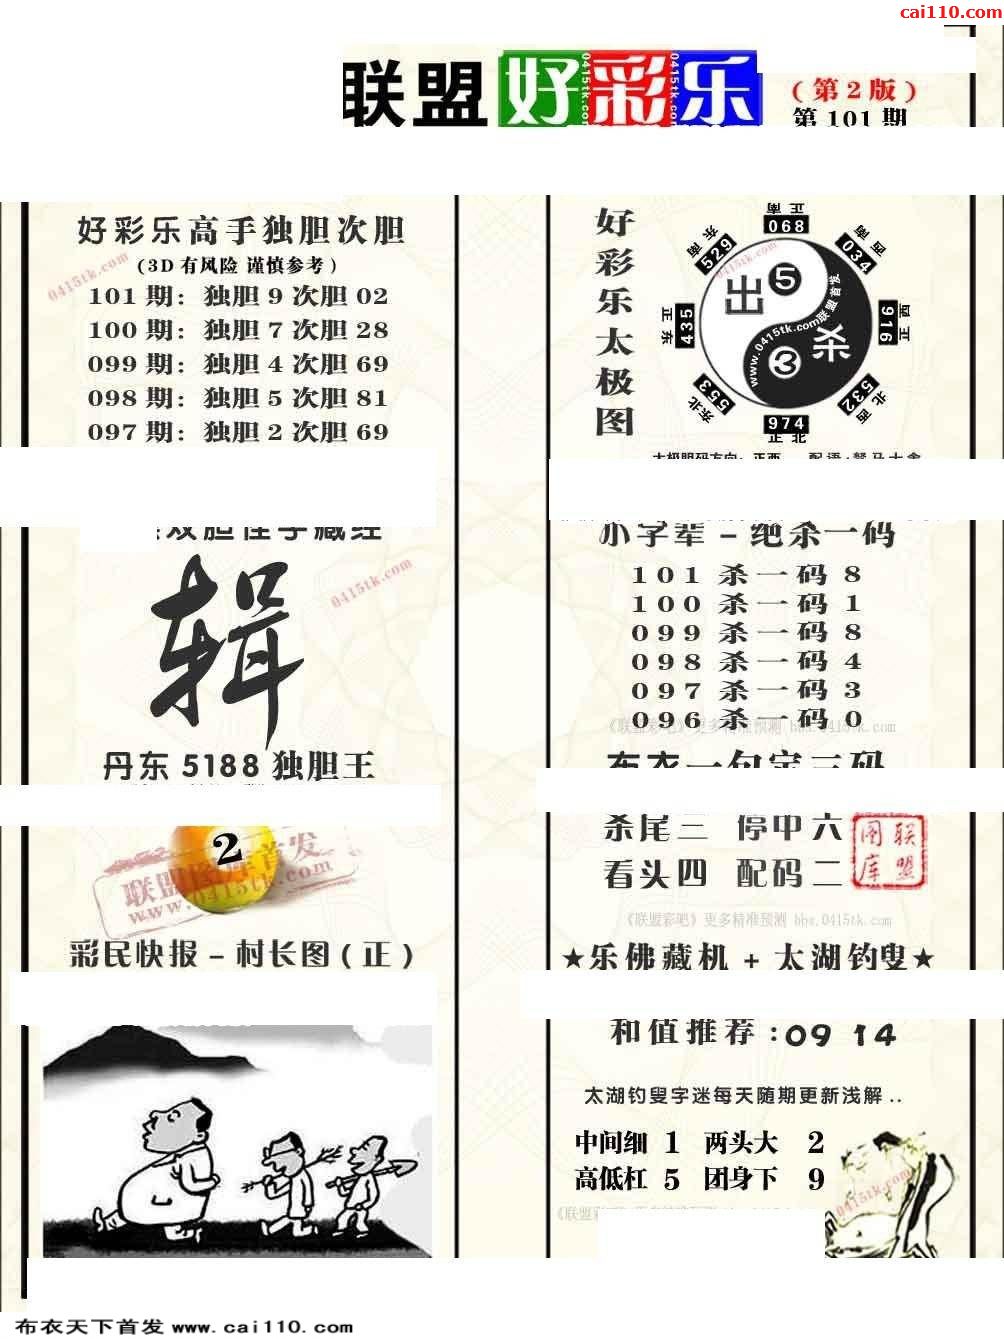 cai110.com
联盟好彩乐
0415tk.com
0415tk.com
(第2版)
第101期
好彩乐高手独胆次胆
(3D有风险 谨慎参考)
0415tk.com
101期：独胆9次胆02
100期：独胆7次胆28
099期：独胆4次胆69
098期：独胆5次胆81
097期：独胆2次胆69
辑
0415tk.com
丹东5188独胆王
2
联盟图库首发
www.0415tk.com
彩民快报－村长图(正)
好彩乐太极图
正南
068
东南
529
西南
034
正东
435
西正
916
东北
553
北西
532
974
正北
出
5
杀
3
www.0415tk.com联盟首发
0415tk.com
小字辈－绝杀一码
101杀一码8
100杀一码1
099杀一码8
098杀一码4
097杀一码3
096杀一码0
《联盟彩吧》更多精准预测 bbs.0415tk.com
布衣一句定三码
杀尾三 停中六
看头四 配码二
联盟图库
《联盟彩吧》更多精准预测 bbs.0415tk.com
★乐佛藏机+太湖钓叟★
和值推荐:09 14
太湖钓叟字迷每天随期更新浅解..
中间细 1 两头大 2
高低杠 5 团身下 9
0415tk.com
布衣天下首发 www.cai110.com